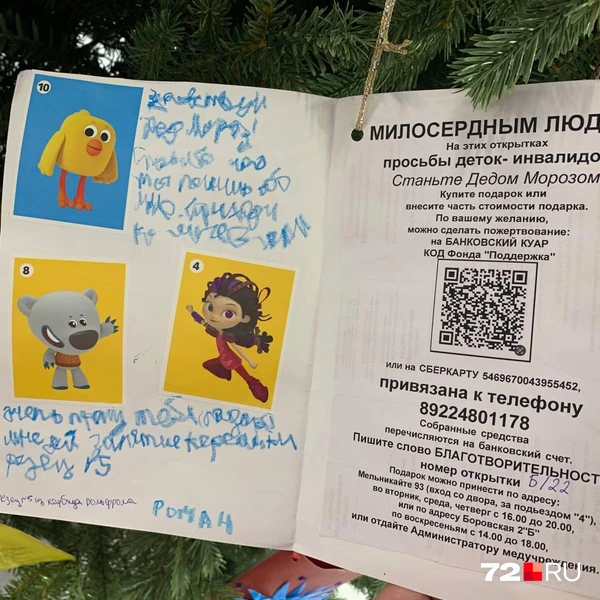 10
здравствуй
Дед Мороз!
Спасибо что
ты помниш обо
мне. приходи
ко мне в
8
4
очень прашу тебя подари
мне
резец
РОМАН
МИЛОСЕРДНЫМ ЛЮД
На этих открытках
просьбы деток- инвалидо
Станьте Дедом Морозом
Купите подарок или
внесите часть стоимости подарка.
По вашему желанию,
можно сделать пожертвование:
на БАНКОВСКИЙ КУАР
КОД Фонда "Поддержка"
или на СБЕРКАРТУ 5469670043955452,
привязана к телефону
89224801178
Собранные средства
перечисляются на банковский счет.
Пишите слово БЛАГОТВОРИТЕЛЬНОСТ
номер открытки Б/22
Подарок можно принести по адресу:
Мельникайте 93 (вход со двора, за подъездом "4"),
во вторник, среда, четверг с 16.00 до 20.00,
или по адресу Боровская 2"Б"
по воскресеньям с 14.00 до 18.00,
или отдайте Администратору медучреждения.
72.RU